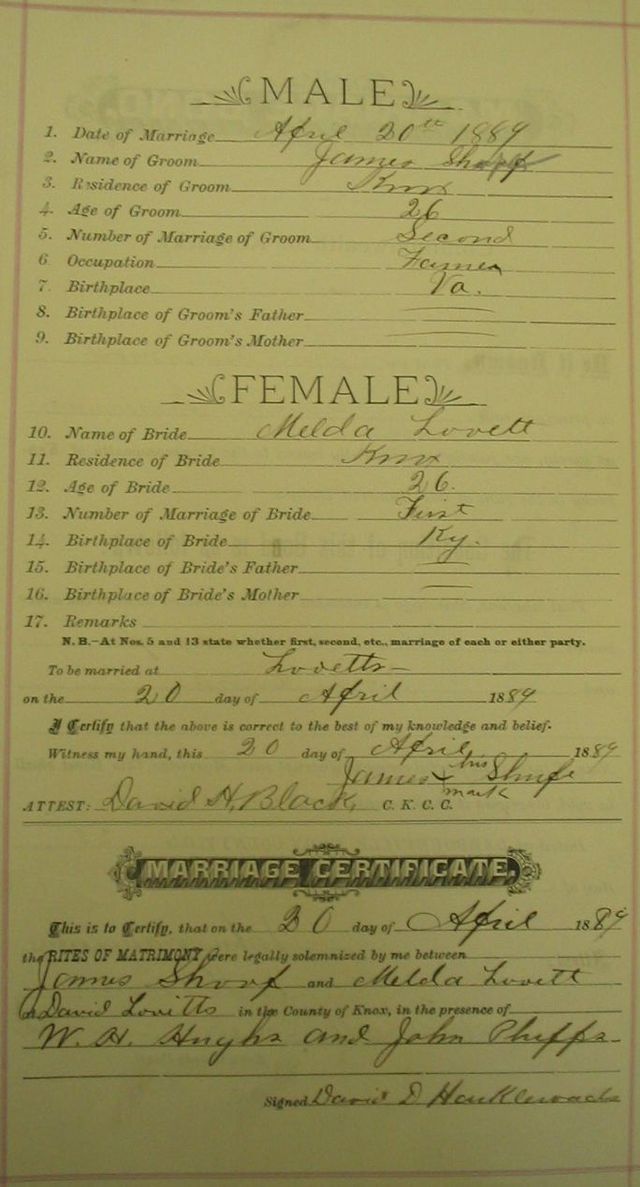 MALE
1. Date of Marriage April 20th 1889
2. Name of Groom James
3. Residence of Groom Knox
4. Age of Groom 26
5. Number of Marriage of Groom Second
6 Occupation Farmer
7. Birthplace Va.
8. Birthplace of Groom's Father
9. Birthplace of Groom's Mother
FEMALE
10. Name of Bride Melda Lovett
11. Residence of Bride Knox
12. Age of Bride 26.
13. Number of Marriage of Bride First
14. Birthplace of Bride Ky.
15. Birthplace of Bride's Father
16. Birthplace of Bride's Mother
17. Remarks
N. B.—At Nos. 5 and 13 state whether first, second, etc., marriage of each or either party.
To be married at Lovetts
on the 20 day of April 1889
I Certify that the above is correct to the best of my knowledge and belief.
Witness my hand, this 20 day of April 1889
James his
mark
ATTEST: David H. Black, C. K. C. C.
MARRIAGE CERTIFICATE.
This is to Certify, that on the 20 day of April 1889
the RITES OF MATRIMONY were legally solemnized by me between
James and Melda Lovett
at David Lovitts in the County of Knox, in the presence of
W. H. Hughs and John Phipps
Signed David D